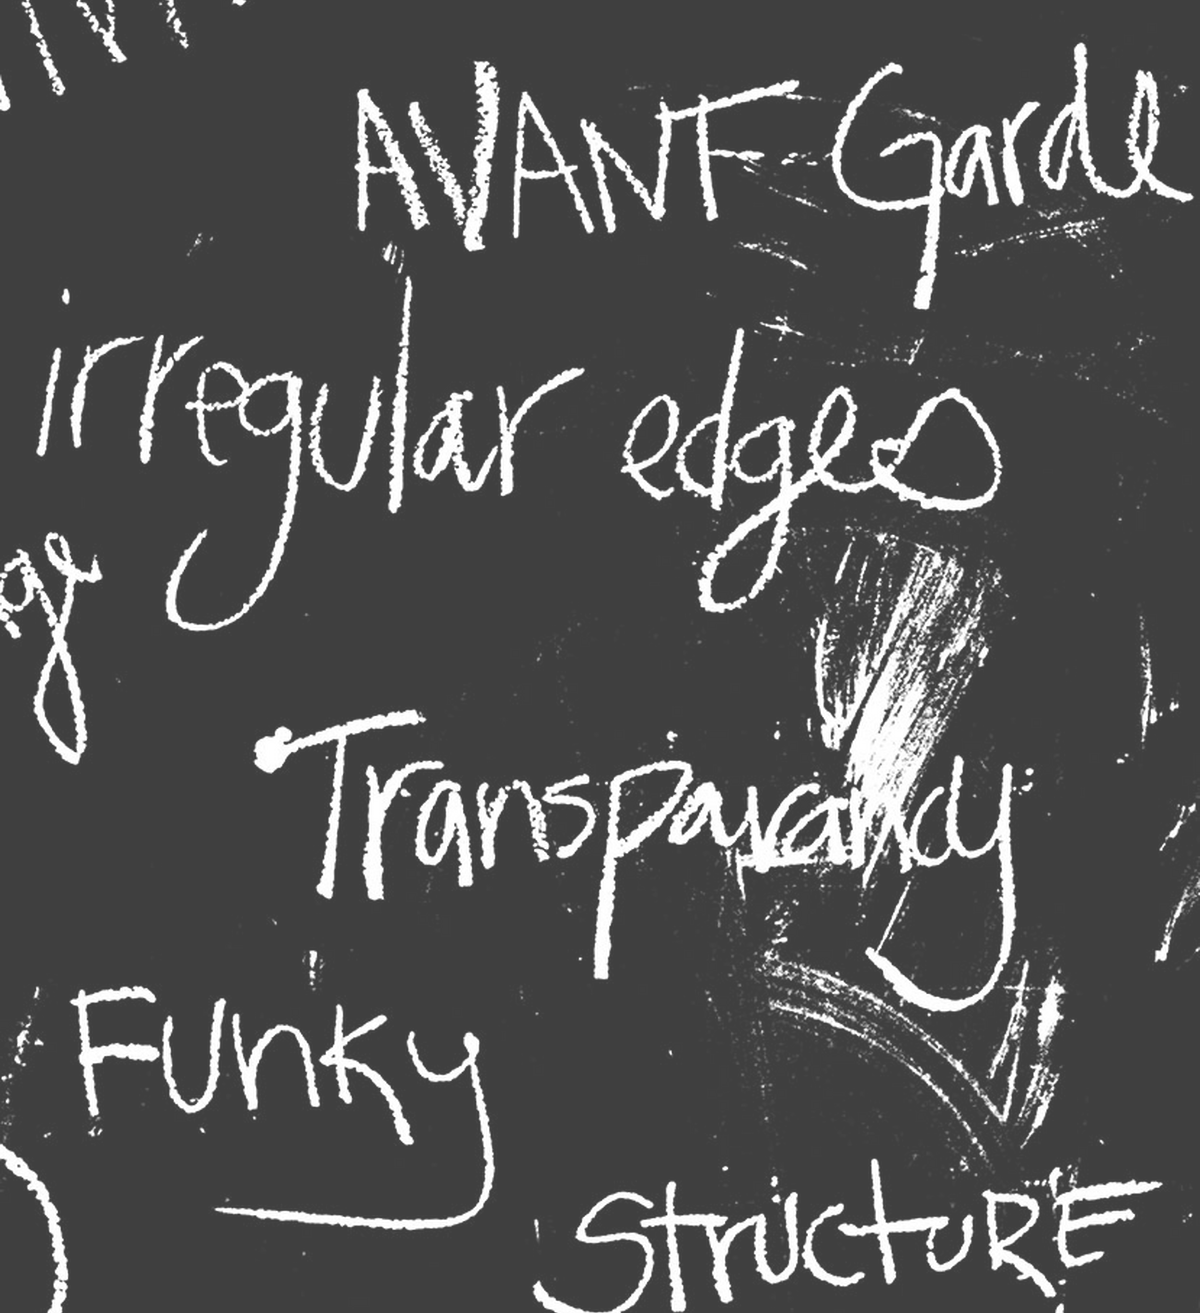 AVANT Garde
irregular edges
Transparancy
Funky
StructuRE